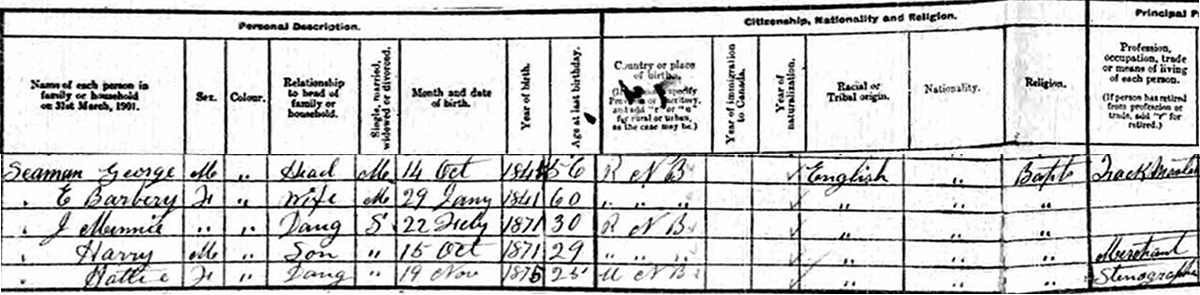 Personal Description. Citizenship, Nationality and Religion. Principal P
Name of each person in family or household on 31st March, 1901. Sex. Colour. Relationship to head of family or household. Single, married, widowed or divorced. Month and date of birth. Year of birth. Age at last birthday. Country or place of birth. (If specify Province or Territory, and add "r" or "u" for rural or urban, as the case may be.) Year of immigration to Canada. Year of naturalization. Racial or Tribal origin. Nationality. Religion. Profession, occupation, trade or means of living of each person. (If person has retired from profession or trade, add "r" for retired.)
Seaman George M " Head M 14 Oct 56 R NB English " Bapt Track Master
" E Barbery F " Wife M 29 Jany 1841 60 " " " " " "
" J Minnie " " Daug S 22 1871 30 R NB " " "
" Harry M " Son " 15 Oct 1871 29 " " " " " " Merchant
" Hattie F " Daug " 19 Nov 1875 25 U NB " " " Stenograph